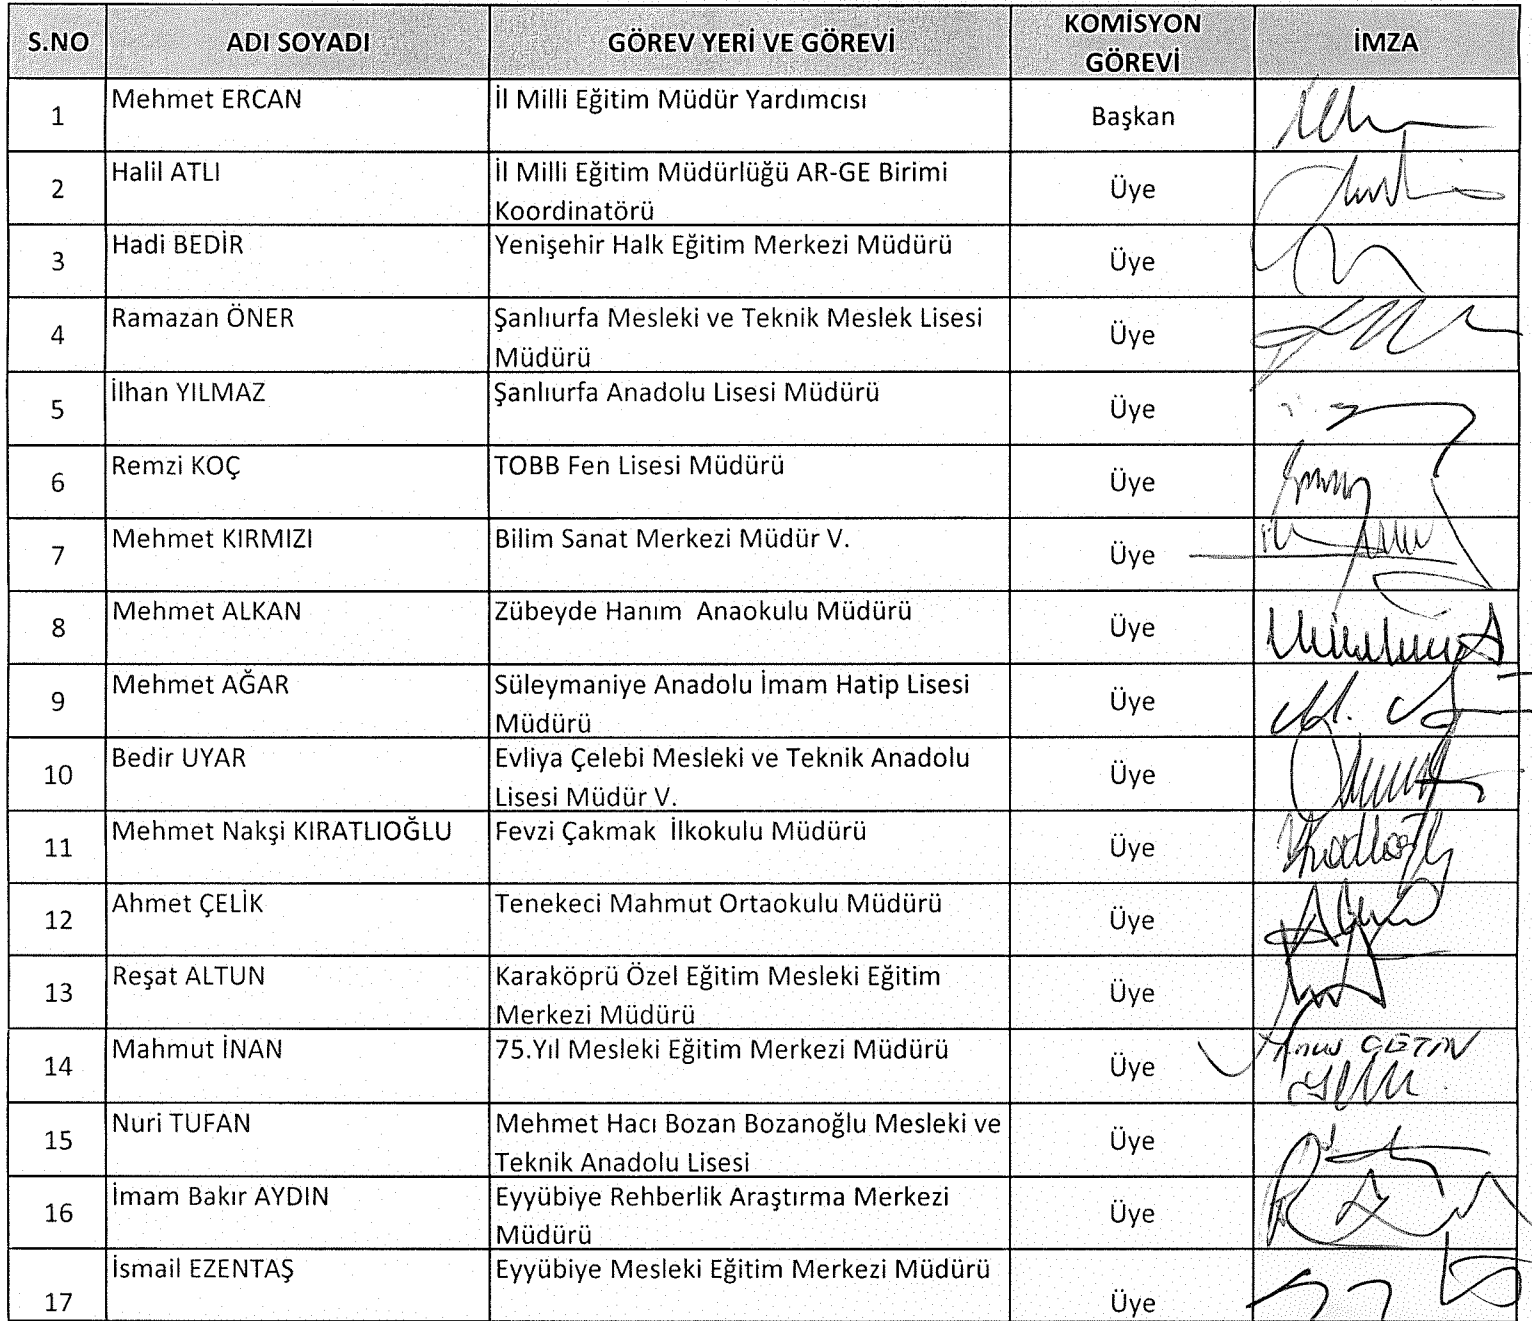 S.NO ADI SOYADI GÖREV YERİ VE GÖREVİ KOMİSYON GÖREVİ İMZA
1 Mehmet ERCAN İl Milli Eğitim Müdür Yardımcısı Başkan
2 Halil ATLI İl Milli Eğitim Müdürlüğü AR-GE Birimi
Koordinatörü Üye
3 Hadi BEDİR Yenişehir Halk Eğitim Merkezi Müdürü Üye
4 Ramazan ÖNER Şanlıurfa Mesleki ve Teknik Meslek Lisesi
Müdürü Üye
5 İlhan YILMAZ Şanlıurfa Anadolu Lisesi Müdürü Üye
6 Remzi KOÇ TOBB Fen Lisesi Müdürü Üye
7 Mehmet KIRMIZI Bilim Sanat Merkezi Müdür V. Üye
8 Mehmet ALKAN Zübeyde Hanım Anaokulu Müdürü Üye
9 Mehmet AĞAR Süleymaniye Anadolu İmam Hatip Lisesi
Müdürü Üye
10 Bedir UYAR Evliya Çelebi Mesleki ve Teknik Anadolu
Lisesi Müdür V. Üye
11 Mehmet Nakşi KIRATLIOĞLU Fevzi Çakmak İlkokulu Müdürü Üye
12 Ahmet ÇELİK Tenekeci Mahmut Ortaokulu Müdürü Üye
13 Reşat ALTUN Karaköprü Özel Eğitim Mesleki Eğitim
Merkezi Müdürü Üye
14 Mahmut İNAN 75.Yıl Mesleki Eğitim Merkezi Müdürü Üye ÇETİN
15 Nuri TUFAN Mehmet Hacı Bozan Bozanoğlu Mesleki ve
Teknik Anadolu Lisesi Üye
16 İmam Bakır AYDIN Eyyübiye Rehberlik Araştırma Merkezi
Müdürü Üye
17 İsmail EZENTAŞ Eyyübiye Mesleki Eğitim Merkezi Müdürü Üye